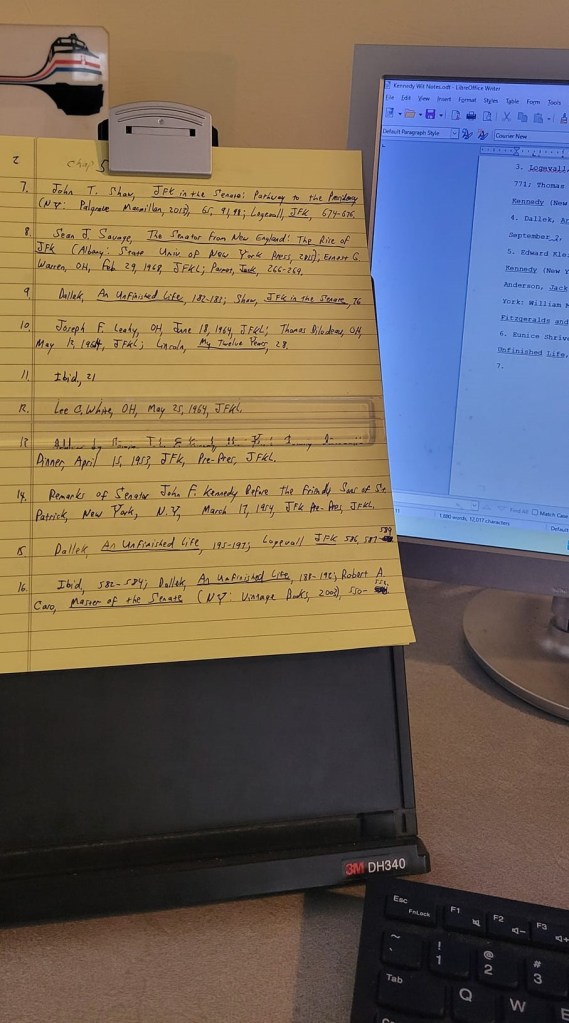 2
Chap 5
7. John T. Shaw, JFK in the Senate: Pathway to the Presidency
(N.Y: Palgrave Macmillan, 2013), 65, 91, 98; Logevall, JFK, 674-676.
8. Sean J. Savage, The Senator From New England: The Rise of
JFK (Albany: State Univ of New York Press, 2015); Ernest G.
Warren, OH, Feb 29, 1968, JFKL; Parmet, Jack, 266-269.
9. Dallek, An Unfinished Life, 182-183; Shaw, JFK in the Senate, 76
10. Joseph F. Leahy, OH, June 18, 1964, JFKL; Thomas Bilodeau, OH,
May 12, 1964, JFKL; Lincoln, My Twelve Years, 28.
11. Ibid, 21
12. Lee C. White, OH, May 25, 1964, JFKL.
13.
Dinner, April 15, 1953, JFK, Pre-Pres, JFKL.
14. Remarks of Senator John F. Kennedy Before the Friendly Sons of St.
Patrick, New York, N.Y, March 17, 1954, JFK Pre-Pres, JFKL.
15. Dallek, An Unfinished Life, 195-197; Logevall JFK 586, 587-589
16. Ibid, 582-584; Dallek, An Unfinished Life, 188-192; Robert A
Caro, Master of the Senate (N.Y: Vintage Books, 2003), 550-552.
3M DH340
Kennedy Wit Notes.odt - LibreOffice Writer
File Edit View Insert Format Styles Table Form Tools
Default Paragraph Style Courier New
3. Logevall,
771; Thomas
Kennedy (New
4. Dallek, An
September 2,
5. Edward Kle
Kennedy (New Y
Anderson, Jack
York: William M
Fitzgeralds and
6. Eunice Shriv
Unfinished Life,
7.
Find All Match Case
1,880 words, 12,017 characters
Default
Esc FnLock F1 F2 F3
~ ! 1 @ 2 # 3
Tab Q W E